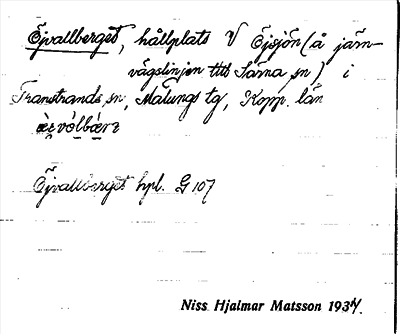 Öjvallberget, hållplats V Öjsjön (å järn-
vägslinjen till Särna sn) i
Transtrands sn, Malungs tg, Kopp. län
Öjvallberget hpl. G 107
Niss Hjalmar Matsson 193